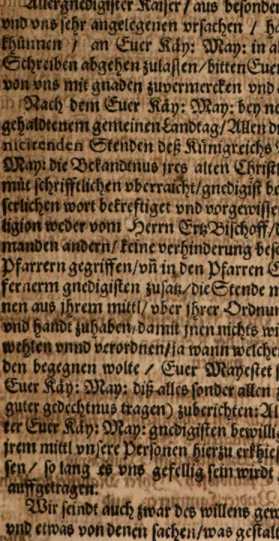 Allergnedigister Kaiser / aus besonder
vnd vns sehr angelegenen vrsachen / ha
khünnen / an Euer Käy: May: in a
Schreiben abgehen zulassen / bitten Euer
von vns mit gnaden zuvermercken vnd
Nach dem Euer Käy: May: bey ne
gehaltenem gemeinen Landtag / Allen d
nicirenden Stenden deß Künigreichs
May: die Bekandtnus jres alten Christ
mit schrifftlichen vberraicht / gnedigist be
serlichen wort bekreftiget vnd vorgewisse
ligion weder vom Herrn Ertz Bischoff / 
manden andern / keine verhinderung besc
Pfarrern gegriffen / vñ in den Pfarren C
fernerm gnedigisten zusatz / die Stende m
nen aus jhrem mittl / vber jhrer Ordnun
vnd handt zuhaben / damit jnen nichts wi
wehlen vnnd verordnen / ja wann welche
den begegnen wolte / Euer Mayestet
Euer Käy: May: diß alles sonder allen z
guter gedechtnus tragen) zuberichten: Al
ter Euer Käy: May: gnedigisten bewilli
jrem mittl vnsere Personen hierzu erkhies
sen / so lang es vns gefellig sein wirdt
auffgetragen.
Wir seindt auch zwar des willens gew
vnd etwas von denen sachen / was gestalt